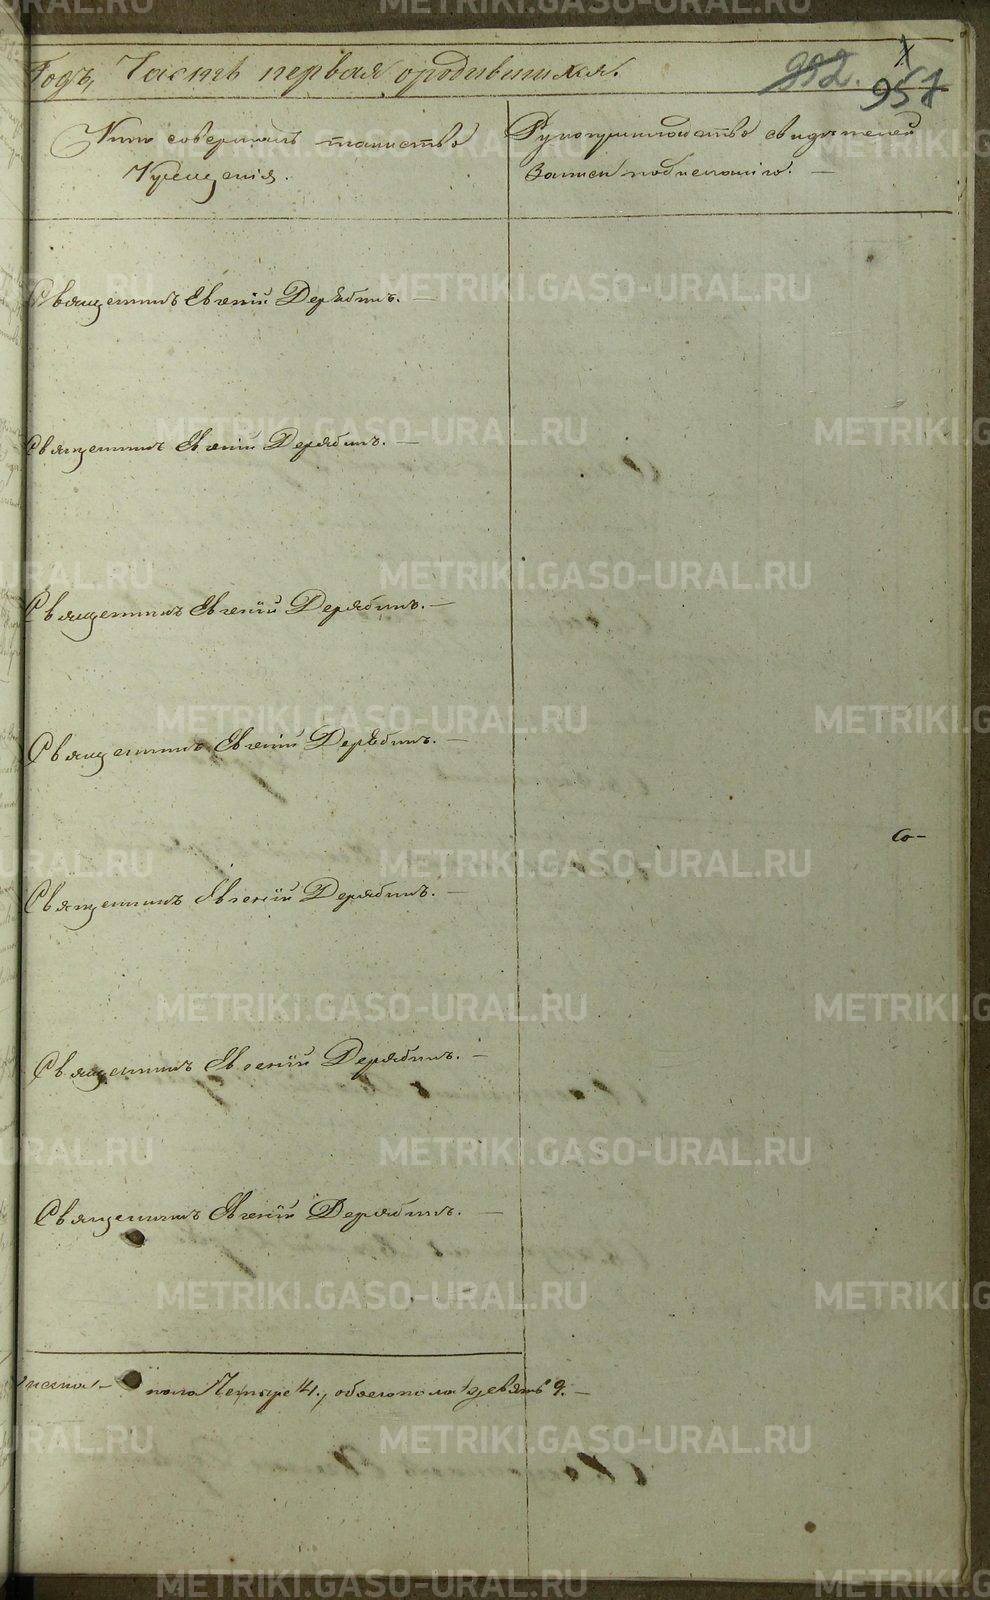 Годъ, Часть первая, о родившихся.
992.
957
Кто совершалъ таинство
Крещенія.
Рукоприкладство свидѣтелей
записи по желанію. —
Священникъ Евгеній Дерябинъ. —
Священникъ Евгеній Дерябинъ. —
Священникъ Евгеній Дерябинъ. —
Священникъ Евгеній Дерябинъ. —
Со-
Священникъ Евгеній Дерябинъ. —
Священникъ Евгеній Дерябинъ. —
Священникъ Евгеній Дерябинъ. —
пола Четыре 4., обоего пола девять 9. —
METRIKI.GASO-URAL.RU